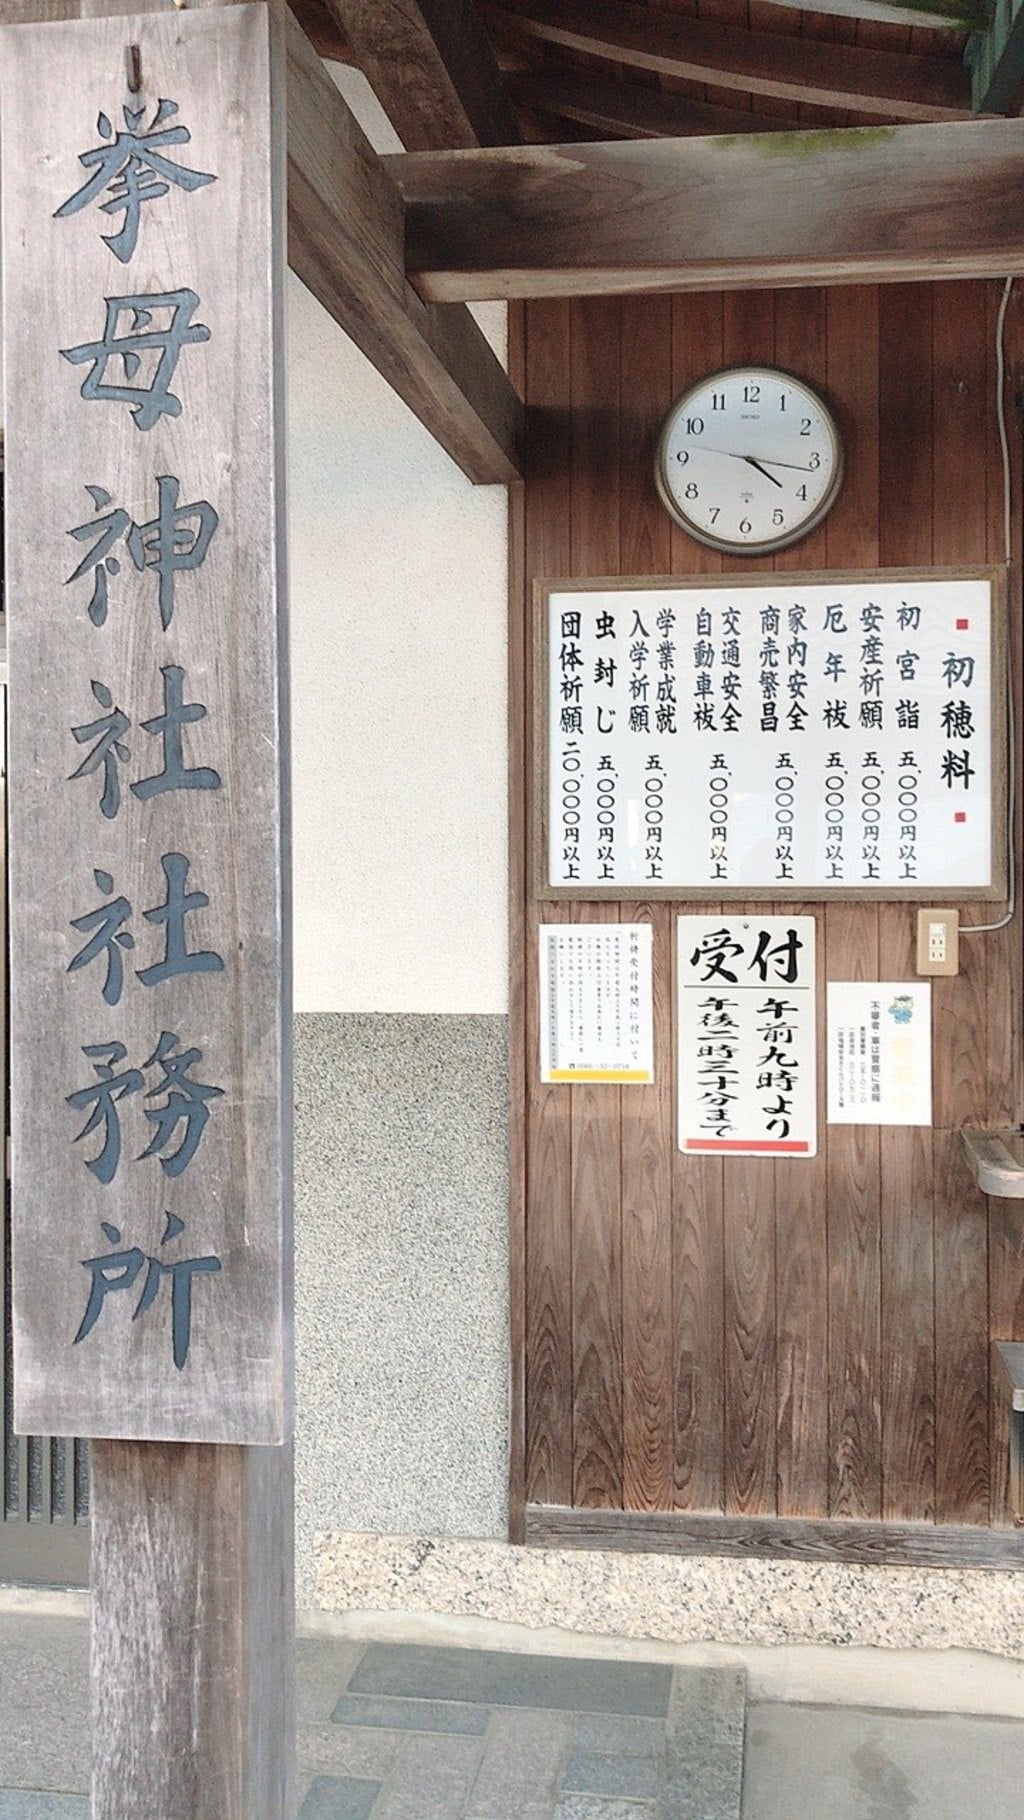 挙母神社社務所
12
1
2
3
4
5
6
7
8
9
10
11
SEIKO
初穂料
初宮詣 五、〇〇〇円以上
安産祈願 五、〇〇〇円以上
厄年祓 五、〇〇〇円以上
家内安全
商売繁昌 五、〇〇〇円以上
交通安全
自動車祓 五、〇〇〇円以上
学業成就
入学祈願 五、〇〇〇円以上
虫封じ 五、〇〇〇円以上
団体祈願 二〇、〇〇〇円以上
祈祷受付時間に付いて
受付
午前九時より
午後二時三十分まで
不審者・車は警察に通報